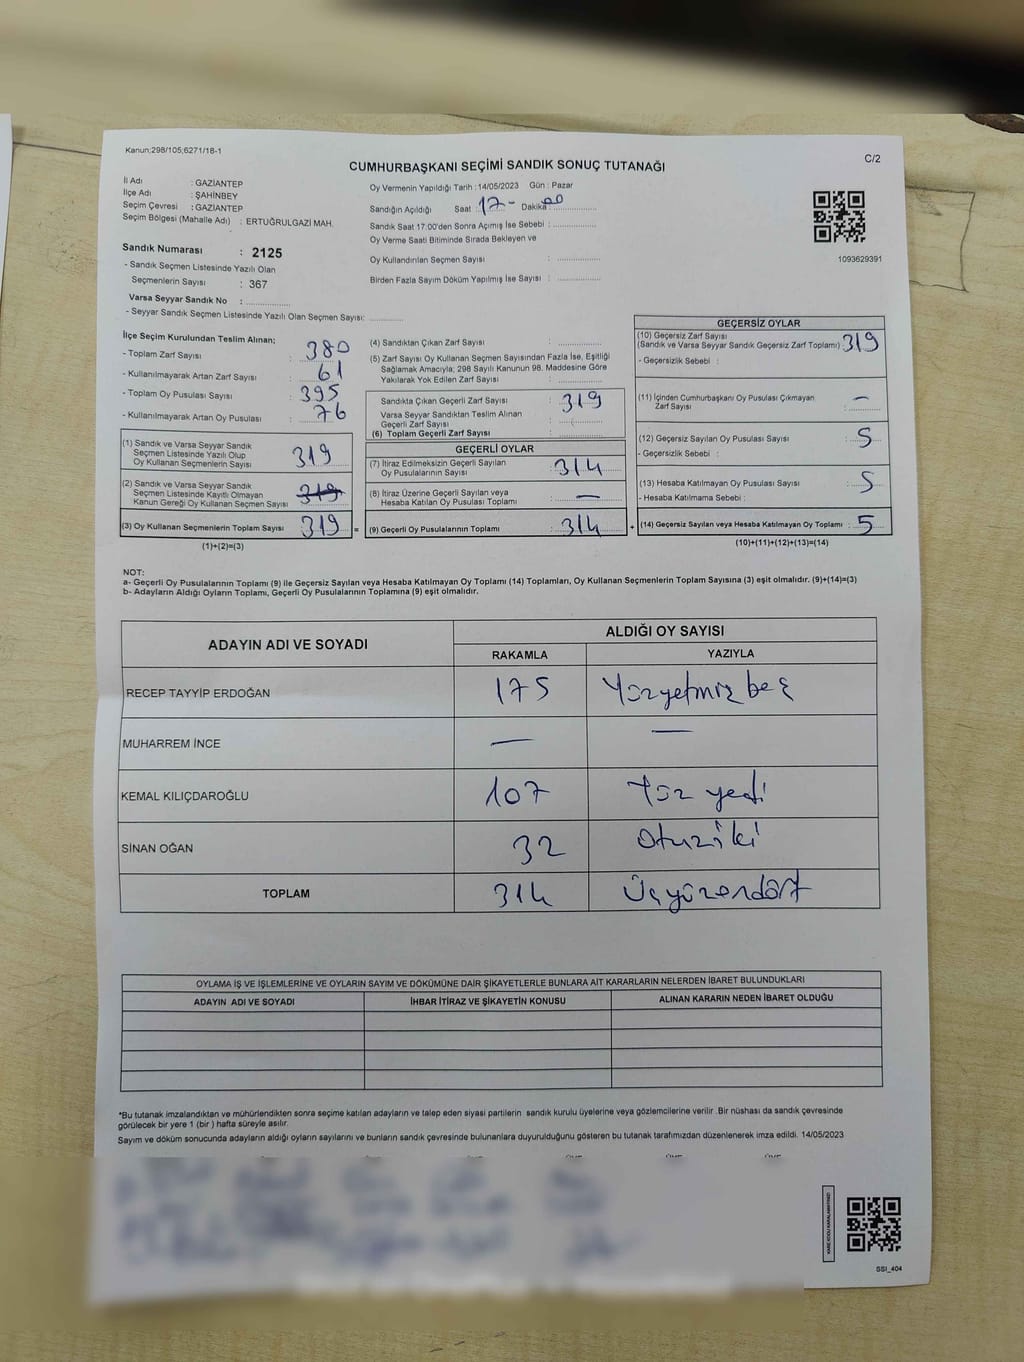 Kanun;298/105;6271/18-1
CUMHURBAŞKANI SEÇİMİ SANDIK SONUÇ TUTANAĞI
C/2
İl Adı : GAZİANTEP
İlçe Adı : ŞAHİNBEY
Seçim Çevresi : GAZİANTEP
Seçim Bölgesi (Mahalle Adı) : ERTUĞRULGAZİ MAH.
Sandık Numarası : 2125
- Sandık Seçmen Listesinde Yazılı Olan
Seçmenlerin Sayısı : 367
Varsa Seyyar Sandık No :
- Seyyar Sandık Seçmen Listesinde Yazılı Olan Seçmen Sayısı:
Oy Vermenin Yapıldığı Tarih : 14/05/2023 Gün : Pazar
Sandığın Açıldığı Saat 17- Dakika 00
Sandık Saat 17:00'den Sonra Açımış İse Sebebi :
Oy Verme Saati Bitiminde Sırada Bekleyen ve
Oy Kullandırılan Seçmen Sayısı :
Birden Fazla Sayım Döküm Yapılmış İse Sayısı :
1093629391
İlçe Seçim Kurulundan Teslim Alınan;
- Toplam Zarf Sayısı : 380
- Kullanılmayarak Artan Zarf Sayısı : 61
- Toplam Oy Pusulası Sayısı : 395
- Kullanılmayarak Artan Oy Pusulası : 76
(1) Sandık ve Varsa Seyyar Sandık
Seçmen Listesinde Yazılı Olup
Oy Kullanan Seçmenlerin Sayısı 319
(2) Sandık ve Varsa Seyyar Sandık
Seçmen Listesinde Kayıtlı Olmayan
Kanun Gereği Oy Kullanan Seçmen Sayısı 319
(3) Oy Kullanan Seçmenlerin Toplam Sayısı 319 =
(1)+(2)=(3)
(4) Sandıktan Çıkan Zarf Sayısı :
(5) Zarf Sayısı Oy Kullanan Seçmen Sayısından Fazla İse, Eşitliği
Sağlamak Amacıyla; 298 Sayılı Kanunun 98. Maddesine Göre
Yakılarak Yok Edilen Zarf Sayısı :
Sandıkta Çıkan Geçerli Zarf Sayısı : 319
Varsa Seyyar Sandıktan Teslim Alınan
Geçerli Zarf Sayısı :
(6) Toplam Geçerli Zarf Sayısı :
GEÇERLİ OYLAR
(7) İtiraz Edilmeksizin Geçerli Sayılan
Oy Pusulalarının Sayısı : 314
(8) İtiraz Üzerine Geçerli Sayılan veya
Hesaba Katılan Oy Pusulası Toplamı : —
(9) Geçerli Oy Pusulalarının Toplamı : 314 +
GEÇERSİZ OYLAR
(10) Geçersiz Zarf Sayısı
(Sandık ve Varsa Seyyar Sandık Geçersiz Zarf Toplamı) : 319
- Geçersizlik Sebebi :
(11) İçinden Cumhurbaşkanı Oy Pusulası Çıkmayan
Zarf Sayısı : —
(12) Geçersiz Sayılan Oy Pusulası Sayısı : 5
- Geçersizlik Sebebi :
(13) Hesaba Katılmayan Oy Pusulası Sayısı : 5
- Hesaba Katılmama Sebebi :
(14) Geçersiz Sayılan veya Hesaba Katılmayan Oy Toplamı : 5
(10)+(11)+(12)+(13)=(14)
NOT:
a- Geçerli Oy Pusulalarının Toplamı (9) ile Geçersiz Sayılan veya Hesaba Katılmayan Oy Toplamı (14) Toplamları, Oy Kullanan Seçmenlerin Toplam Sayısına (3) eşit olmalıdır. (9)+(14)=(3)
b- Adayların Aldığı Oyların Toplamı, Geçerli Oy Pusulalarının Toplamına (9) eşit olmalıdır.
ADAYIN ADI VE SOYADI ALDIĞI OY SAYISI
RAKAMLA YAZIYLA
RECEP TAYYİP ERDOĞAN 175 Yüzyetmiş beş
MUHARREM İNCE — —
KEMAL KILIÇDAROĞLU 107 Yüz yedi
SİNAN OĞAN 32 Otuziki
TOPLAM 314 Üçyüzondört
OYLAMA İŞ VE İŞLEMLERİNE VE OYLARIN SAYIM VE DÖKÜMÜNE DAİR ŞİKAYETLERLE BUNLARA AİT KARARLARIN NELERDEN İBARET BULUNDUKLARI
ADAYIN ADI VE SOYADI İHBAR İTİRAZ VE ŞİKAYETİN KONUSU ALINAN KARARIN NEDEN İBARET OLDUĞU
*Bu tutanak imzalandıktan ve mühürlendikten sonra seçime katılan adayların ve talep eden siyasi partilerin sandık kurulu üyelerine veya gözlemcilerine verilir .Bir nüshası da sandık çevresinde
görülecek bir yere 1 (bir ) hafta süreyle asılır.
Sayım ve döküm sonucunda adayların aldığı oyların sayılarını ve bunların sandık çevresinde bulunanlara duyurulduğunu gösteren bu tutanak tarafımızdan düzenlenerek imza edildi. 14/05/2023
KARE KODU KARALAMAYINIZ!
SSİ_404